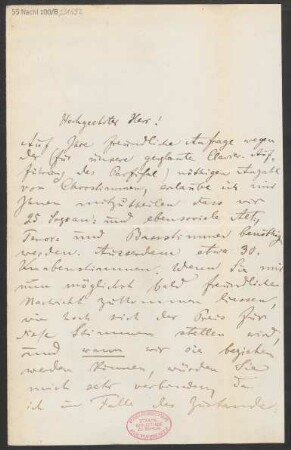 55 Nachl 100/B,
Hochgeehrter Herr!
Auf Ihre freundliche Anfrage wegen
der (für unsere geplante Clavier-Auf-
führung des Parsifal) nöthigen Anzahl
von Chorstimmen, erlaube ich mir
Ihnen mitzutheilen dass wir
25 Sopran: und ebensoviele Alt,
Tenor und Bassstimmen benöthigen
werden. Ausserdem etwa 30.
Knabenstimmen. Wenn Sie mir
nun möglichst bald freundliche
Nachricht zukommen lassen,
wie hoch sich der Preis für
diese Stimmen stellen wird,
und wann wir sie beziehen
werden können, würden Sie
mich sehr verbinden, da
ich im Falle des Zustande-